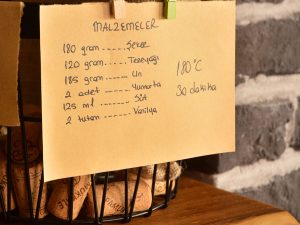 MALZEMELER
180 gram ----- Şeker
120 gram ---- Tereyağı
185 gram ---- Un
2 adet ---- Yumurta
125 ml ---- Süt
2 tutam ---- Vanilya
180°C
30 dakika